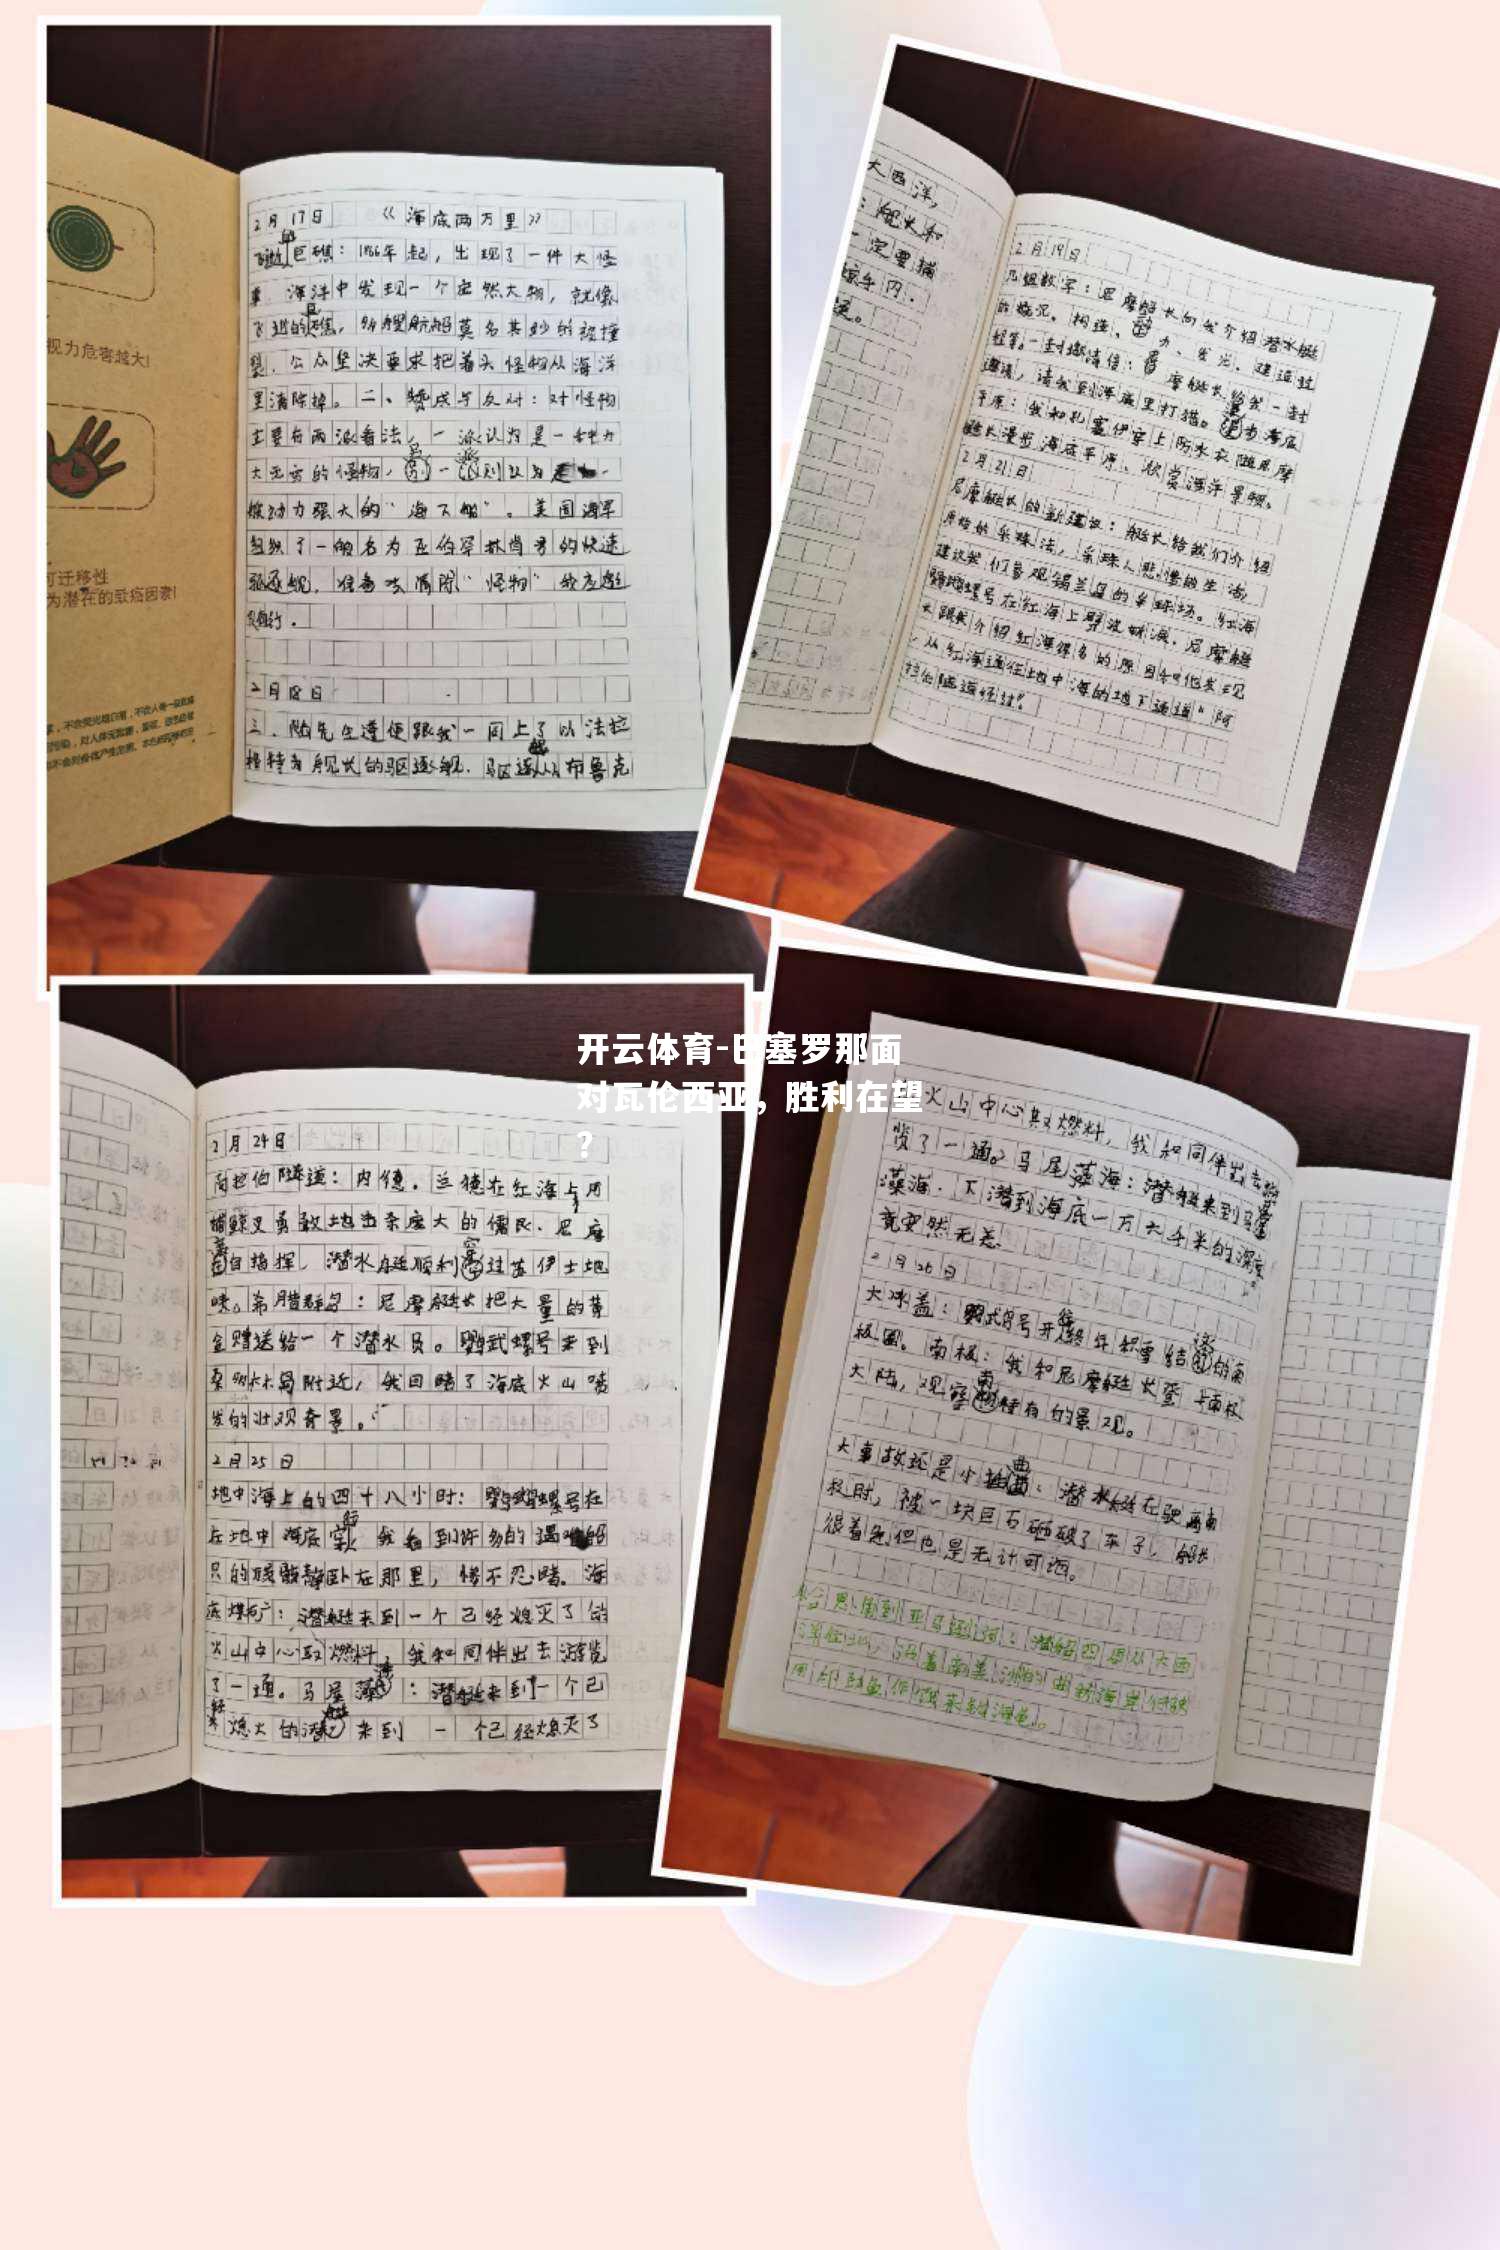 2月17日 《海底两万里》
巨礁：1866年起，出现了一件大怪
事。海洋中发现一个庞然大物，就像
飞逝的礁，多艘航船莫名其妙的被撞
裂，公众坚决要求把着头怪物从海洋
里清除掉。二、赞成与反对：对怪物
主要有两派看法，一派认为是一种力
大无穷的怪物，一派则以为是一
艘动力强大的“海下船”。美国海军
组织了一艘名为亚伯罕林肯号的快速
驱逐舰，准备去清除“怪物”我应邀
前行。
2月18日
三、随先生遵便跟我一同上了以法拉
格特为舰长的驱逐舰，驱逐从布鲁克
视力危害越大!
可迁移性
为潜在的致癌因素!
大西洋，
：舰长和
一定要捕
2月19日
几组数字：尼摩艇长向我介绍潜水艇
的概况。构造、动力、发光、建造过
程等。一封邀请信：尼摩艇长给我一封
邀请，请我到海底里打猎。漫步海底
平原：我和孔塞伊穿上防水衣随尼摩
艇长漫步海底平原、欣赏海洋景观。
2月21日
尼摩艇长的新建议：艇长给我们介绍
原始的采珠法，采珠人悲惨的生活，
建议我们参观锡兰岛的采珠场。红海
鹦鹉螺号在红海上劈波斩浪，尼摩艇
长跟我介绍红海得名的原因和他发现
，从红海通往地中海的地下通道“阿
拉伯隧道经过”。
开云体育-巴塞罗那面
对瓦伦西亚，胜利在望
？
2月24日
阿拉伯隧道：内德。兰德在红海上用
捕鲸叉勇敢地击杀庞大的儒艮。尼摩
亲自指挥，潜水艇顺利穿过苏伊士地
峡。希腊群岛：尼摩艇长把大量的黄
金赠送给一个潜水员。鹦鹉螺号来到
桑多林岛附近，我目睹了海底火山喷
发的壮观奇景。
2月25日
地中海上的四十八小时：鹦鹉螺号在
在地中海底穿行，我看到许多的遇难船
只的残骸静卧在那里，惨不忍睹。海
底煤矿：潜艇来到一个已经熄灭了的
火山中心取燃料，我和同伴出去游览
了一通。马尾藻海：潜艇来到一个已
经熄火的潜艇来到一个已经熄灭了
火山中心取燃料，我和同伴出去游
览了一通。马尾藻海：潜艇来到马尾
藻海，下潜到海底一万六千米的深度
竟安然无恙
2月26日
大冰盖：鹦鹉号开往终年积雪结冰的南
极圈。南极：我和尼摩艇长登上南极
大陆，观察南极特有的景观。
大事故还是小插曲：潜水艇在驶离南
极时，被一块巨石砸破了车子，船长
很着急但也是无计可施。